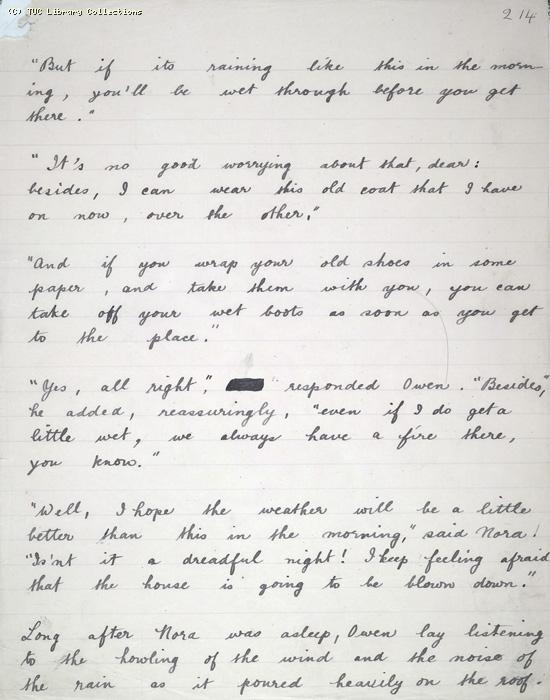 (C) TUC Library Collections
214
"But if its raining like this in the morn-
ing, you'll be wet through before you get
there."
"It's no good worrying about that, dear:
besides, I can wear this old coat that I have
on now, over the other."
"And if you wrap your old shoes in some
paper, and take them with you, you can
take off your wet boots as soon as you get
to the place."
"Yes, all right", responded Owen. "Besides",
he added, reassuringly, "even if I do get a
little wet, we always have a fire there,
you know."
"Well, I hope the weather will be a little
better than this in the morning," said Nora!
"Is'nt it a dreadful night! I keep feeling afraid
that the house is going to be blown down."
Long after Nora was asleep, Owen lay listening
to the howling of the wind and the noise of
the rain as it poured heavily on the roof.